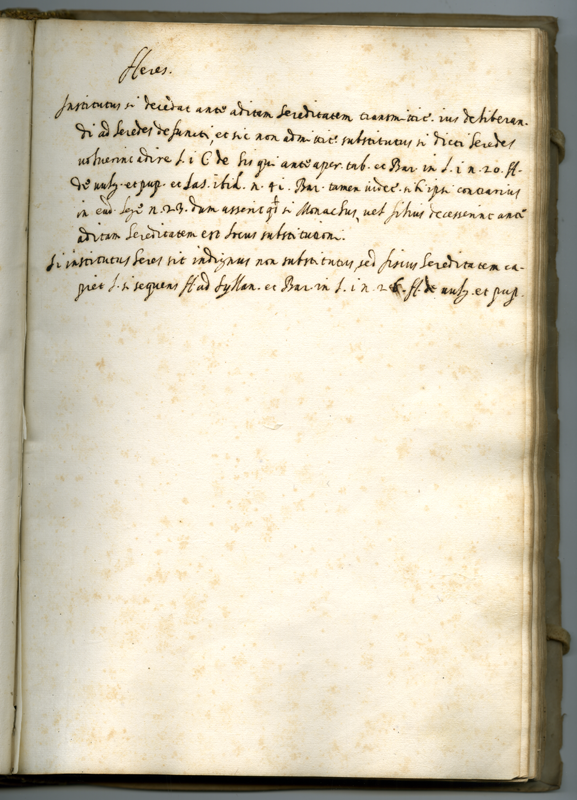 Heres.
Institutus si decedat ante aditam hereditatem transmittit ius deliberan-
di ad heredes defuncti, et sic non admittit substitutus si dicti heredes
voluerint adire L. i C. de his qui ante aper. tab. et Bar. in L. i n. 20. ff.
de vulg. et pup. et Ias. ibid. n. 41. Bar. tamen videt. sibi ipsi contrarius
in ead. lege n. 23. dum asserit qd si Monachus, vel filius decesserint ante
aditam hereditatem est locus substitutioni.
Si institutus heres sit indignus non substitutus sed fiscus hereditatem ca-
piet L. si sequens ff. ad Syllan. et Bar. in L. i n. ff. de vulg. et pup.